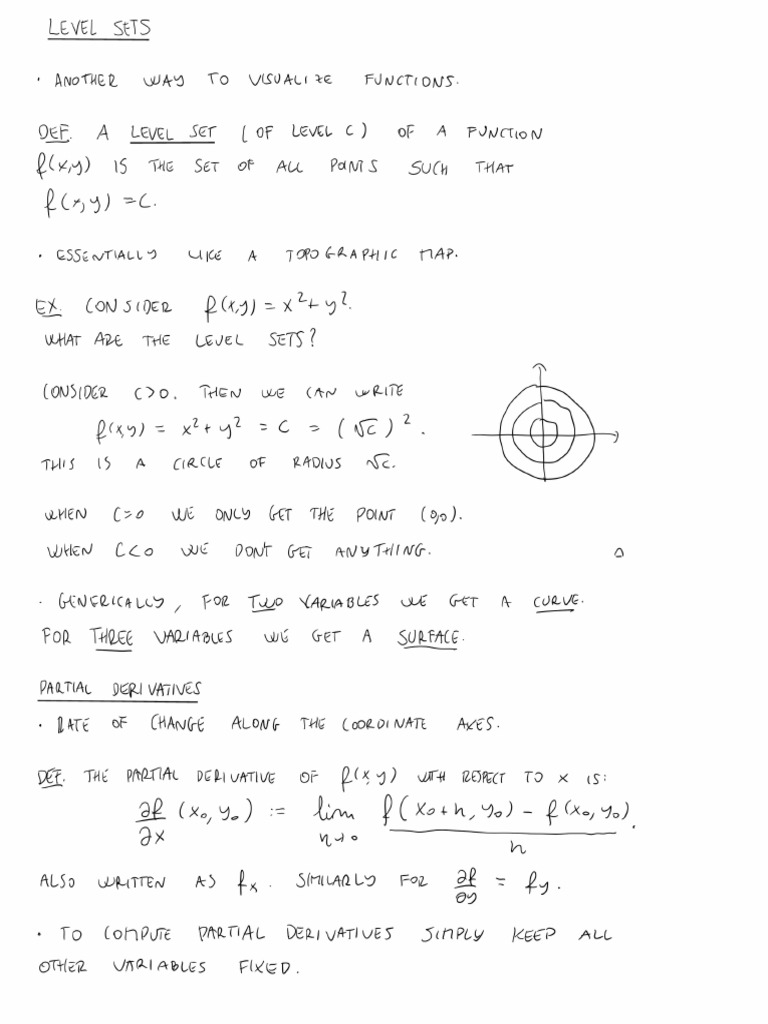 LEVEL SETS
· ANOTHER WAY TO VISUALIZE FUNCTIONS.
DEF. A LEVEL SET (OF LEVEL C) OF A FUNCTION
f(x,y) IS THE SET OF ALL POINTS SUCH THAT
f(x,y) = C.
· ESSENTIALLY LIKE A TOPOGRAPHIC MAP.
EX. CONSIDER f(x,y) = x² + y².
WHAT ARE THE LEVEL SETS?
CONSIDER C>0. THEN WE CAN WRITE
f(x,y) = x² + y² = C = (√C)².
THIS IS A CIRCLE OF RADIUS √C.
WHEN C=0 WE ONLY GET THE POINT (0,0).
WHEN C<0 WE DONT GET ANYTHING.
· GENERICALLY, FOR TWO VARIABLES WE GET A CURVE.
FOR THREE VARIABLES WE GET A SURFACE.
PARTIAL DERIVATIVES
· RATE OF CHANGE ALONG THE COORDINATE AXES.
DEF. THE PARTIAL DERIVATIVE OF f(x,y) WITH RESPECT TO X IS:
∂f/∂x (x₀, y₀) := lim h→0 f(x₀+h, y₀) − f(x₀, y₀) / h.
ALSO WRITTEN AS fx. SIMILARLY FOR ∂f/∂y = fy.
· TO COMPUTE PARTIAL DERIVATIVES SIMPLY KEEP ALL
OTHER VARIABLES FIXED.